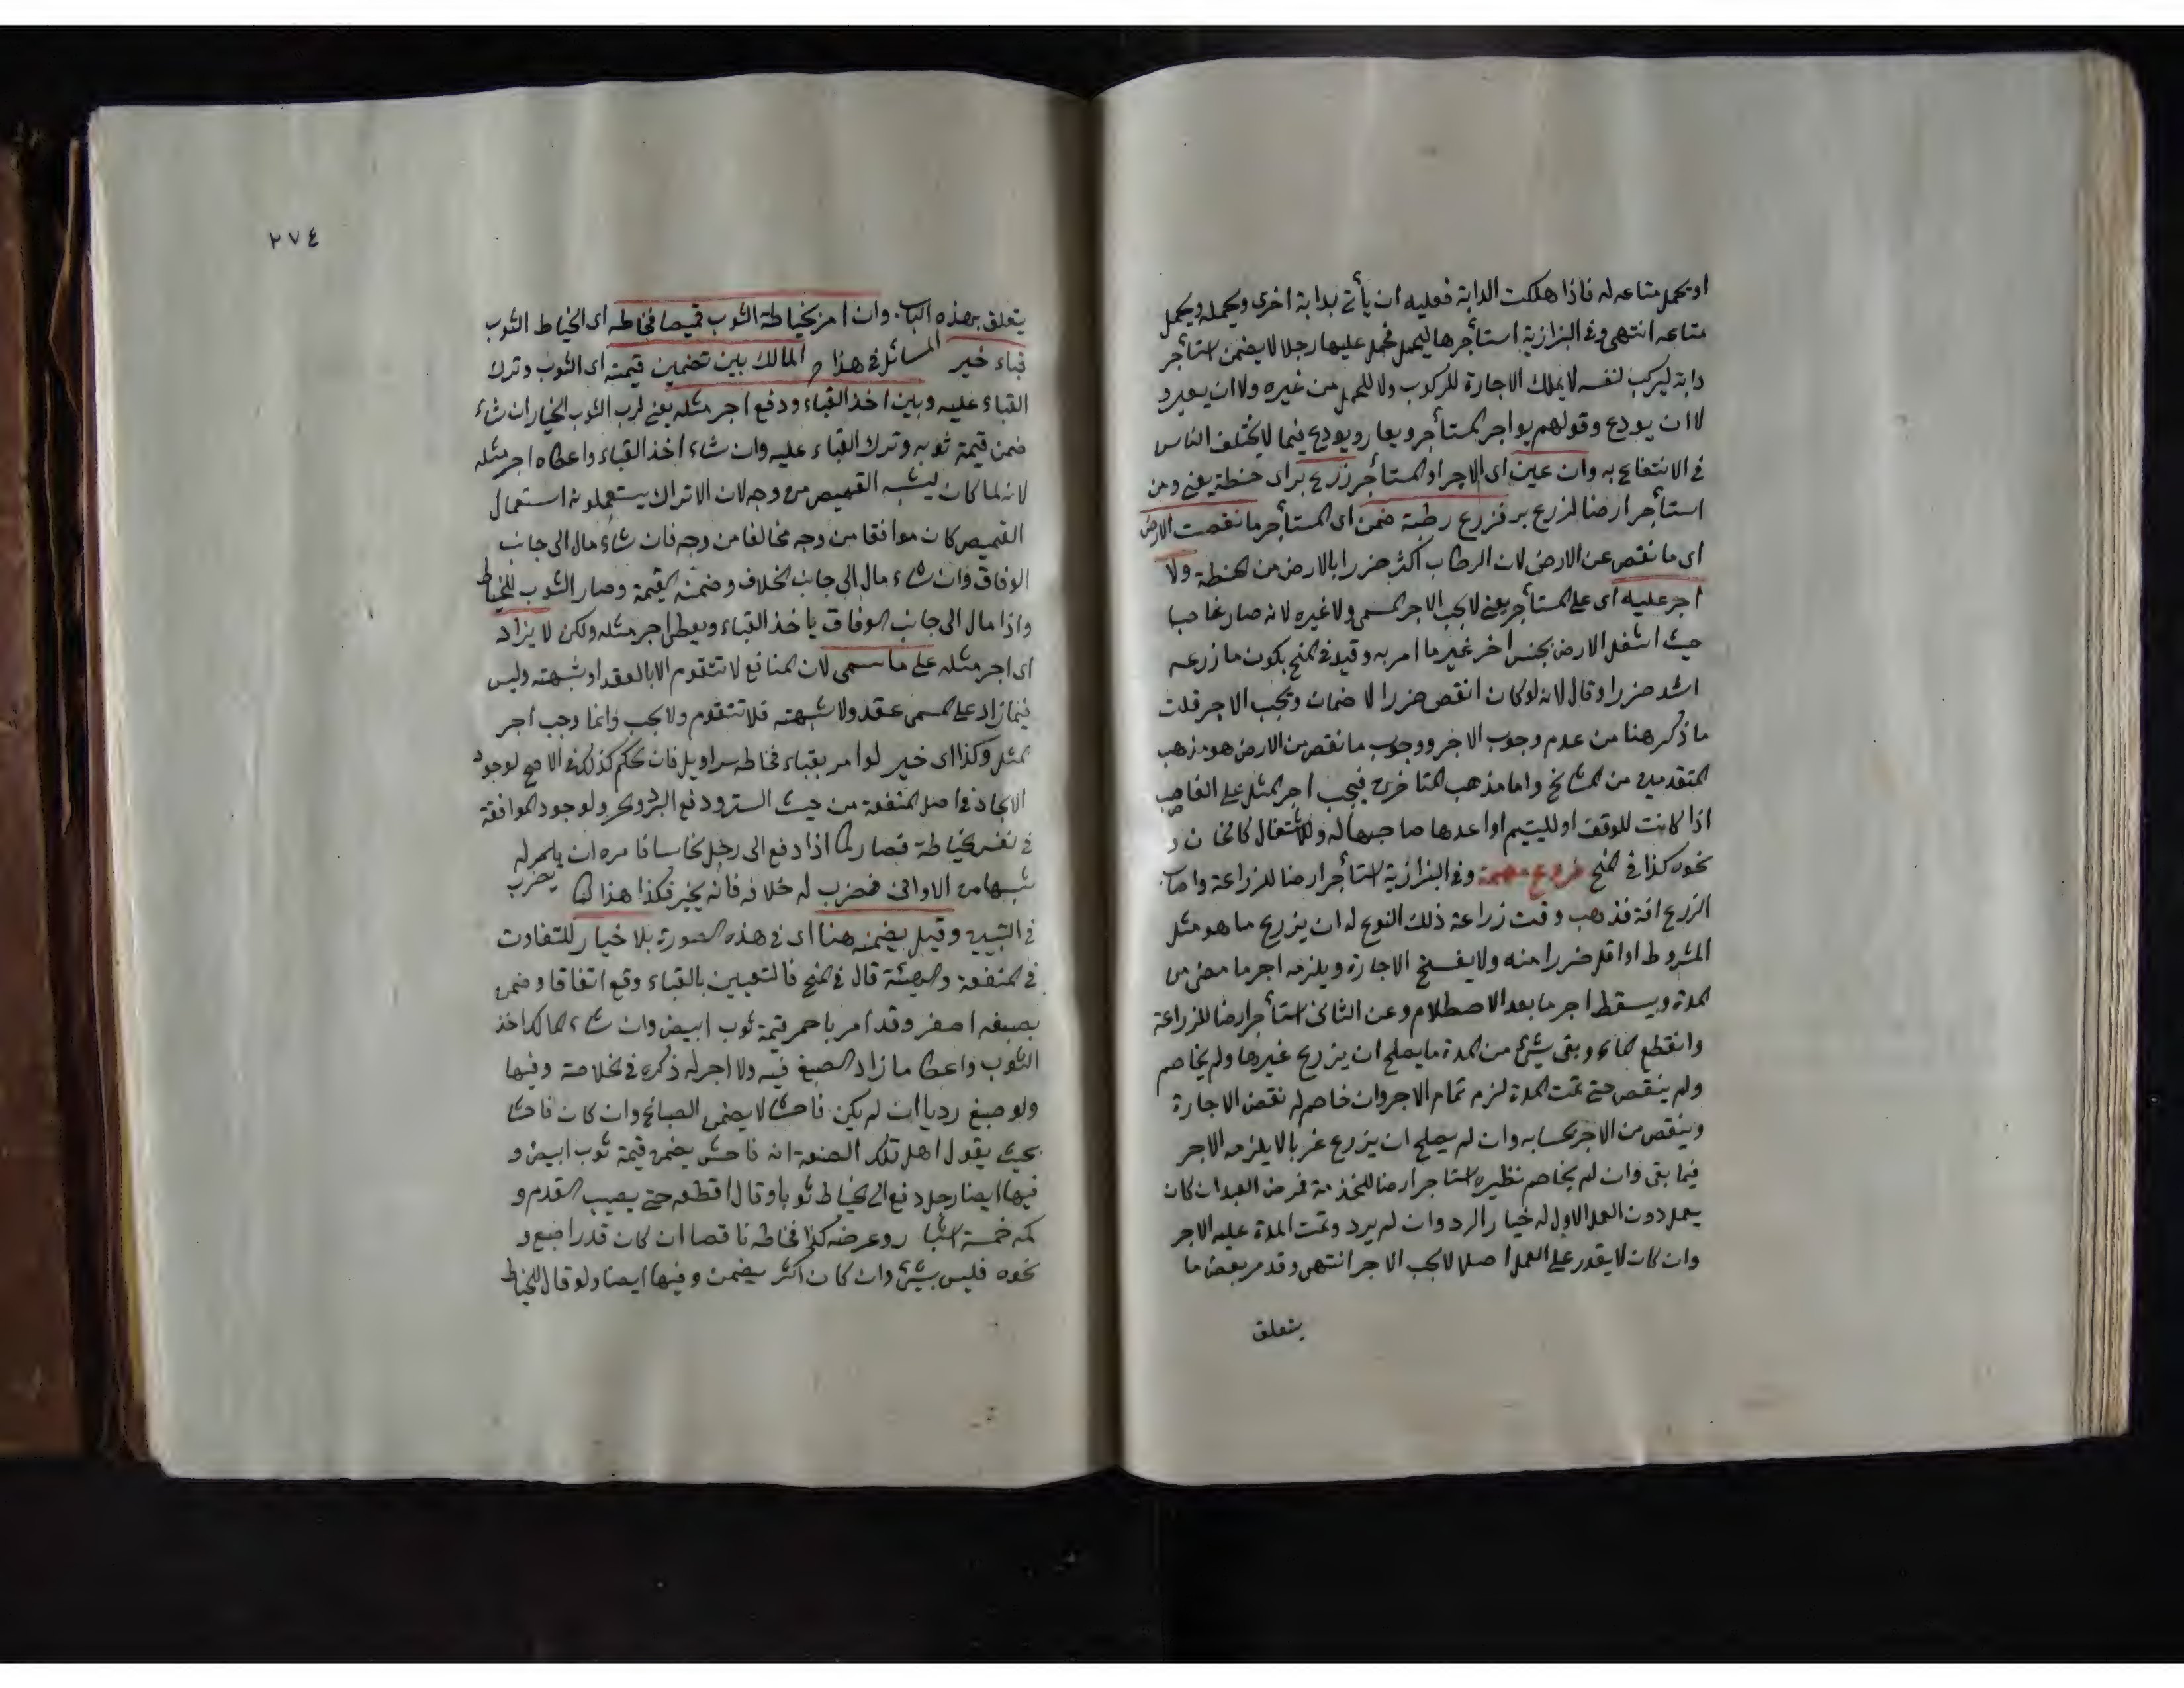 او يحمل متاعه له فاذا هلكت الدابة فعليه ان يأتى بدابة اخرى ويحمله ويحمل
متاعه انتهى وفى البزازية استأجرها ليحمل فحمل عليها رجلا لا يضمن استأجر
دابة ليركب لنفسه لا يملك الاجارة للركوب ولا للحمل من غيره ولا ان يعير و
لا ان يودع وقولهم يواجر المستأجر ويعار ويودع فيما لا يختلف الناس
فى الانتفاع به وان عين اى الاجر او المستأجر زرع براى حنطة يعنى ومن
استأجر ارضا لزرع بر فزرع رطبة ضمن اى المستأجر ما نقصت الارض
اى ما نقص عن الارض لان الرطاب اكثر ضررا بالارض من الحنطة ولا
اجر عليه اى على المستأجر يعنى لا يجب الاجر المسمى ولا غيره لانه صار غاصبا
حيث اشغل الارض بجنس اخر غير ما امر به وقيد فى المنح بكون ما زرعه
اشد ضررا وقال لانه لو كان انقص ضررا لا ضمان ويجب الاجر قلت
ما ذكر هنا من عدم وجوب الاجر ووجوب ما نقص من الارض هو مذهب
المتقدمين من المشائخ واما مذهب المتاخرين فيجب اجر المثل على الغاصب
اذا كانت للوقف او لليتيم او اعدها صاحبها له وللاشتغال كالخان و
نحوه كذا فى المنح فروع مهمة وفى البزازية استأجر ارضا للزراعة واصاب
الزرع افة فذهب وقت زراعة ذلك النوع له ان يزرع ما هو مثل
المشروط او اقل ضررا منه ولا يفسخ الاجارة ويلزمه اجر ما مضى من
المدة ويسقط اجر ما بعد الاصطلام وعن الثانى استأجر ارضا للزراعة
وانقطع الماء وبقى شئ من المدة ما يصلح ان يزرع غيرها ولم يخاصم
ولم ينقص حتى تمت المدة لزم تمام الاجر وان خاصم له نقض الاجارة
وينقص من الاجر بحسابه وان لم يصلح ان يزرع غربا لا يلزمه الاجر
فيما بقى وان لم يخاصم نظيره استاجر ارضا للخدمة فمرض العبد ان كان
يعمل دون العمل الاول له خيار الرد وان لم يرد وتمت المدة عليه الاجر
وان كان لا يقدر على العمل اصلا لا يجب الاجر انتهى وقد مر بعض ما
يتعلق
٢٧٤
يتعلق بهذه الباب وان امر بخياطة الثوب قميصا فخاطه اى الخياط الثوب
قباء خير المسائل فى هذا المالك بين تضمين قيمته اى الثوب وترك
القباء عليه وبين اخذ القباء ودفع اجر مثله يعنى لرب الثوب الخيار ان شاء
ضمن قيمة ثوبه وترك القباء عليه وان شاء اخذ القباء واعطاه اجر مثله
لانه لما كان يشبه القميص من وجه لان الاتراك يستعملونه استعمال
القميص كان موافقا من وجه مخالفا من وجه فان شاء مال الى جانب
الوفاق وان شاء مال الى جانب الخلاف وضمنه القيمة وصار الثوب للخياط
واذا مال الى جانب الوفاق ياخذ القباء ويعطى اجر مثله ولكن لا يزاد
اى اجر مثله على ما سمى لان المنافع لا تتقوم الا بالعقد او شبهته وليس
فيما زاد على المسمى عقد ولا شبهته فلا تتقوم ولا يجب وانما وجب اجر
المثل وكذا اى خير لو امر بقباء فخاطه سراويل فان الحكم كذلك فى الاصح لوجود
الاتحاد فى اصل المنفعة من حيث الستر ودفع البرد والحر ولوجود الموافقة
فى نفس الخياطة فصار كما اذا دفع الى رجل نحاسا فامره ان يضرب له
شبها من الاوانى فضرب له خلافه فانه يخير فكذا هذا كما
فى التبيين وقيل يضمن هنا اى فى هذه الصورة بلا خيار للتفاوت
فى المنفعة والهيئة قال فى المنح فالتعيين بالقباء وقع اتفاقا وضمن
بصبغه اصفر وقد امر باحمر قيمة ثوب ابيض وان شاء المالك اخذ
الثوب واعطا ما زاد الصبغ فيه ولا اجر له ذكره فى الخلاصة وفيها
ولو صبغ رديا ان لم يكن فاحشا لا يضمن الصباغ وان كان فاحشا
بحيث يقول اهل تلك الصنعة انه فاحش يضمن قيمة ثوب ابيض و
فيها ايضا رجل دفع الى الخياط ثوبا وقال اقطعه حتى يصيب القدم و
كمه خمسة اشبار وعرضه كذا فخاطه ناقصا ان كان قدر اصبع و
نحوه فليس بشئ وان كان اكثر يضمن وفيها ايضا ولو قال للخياط